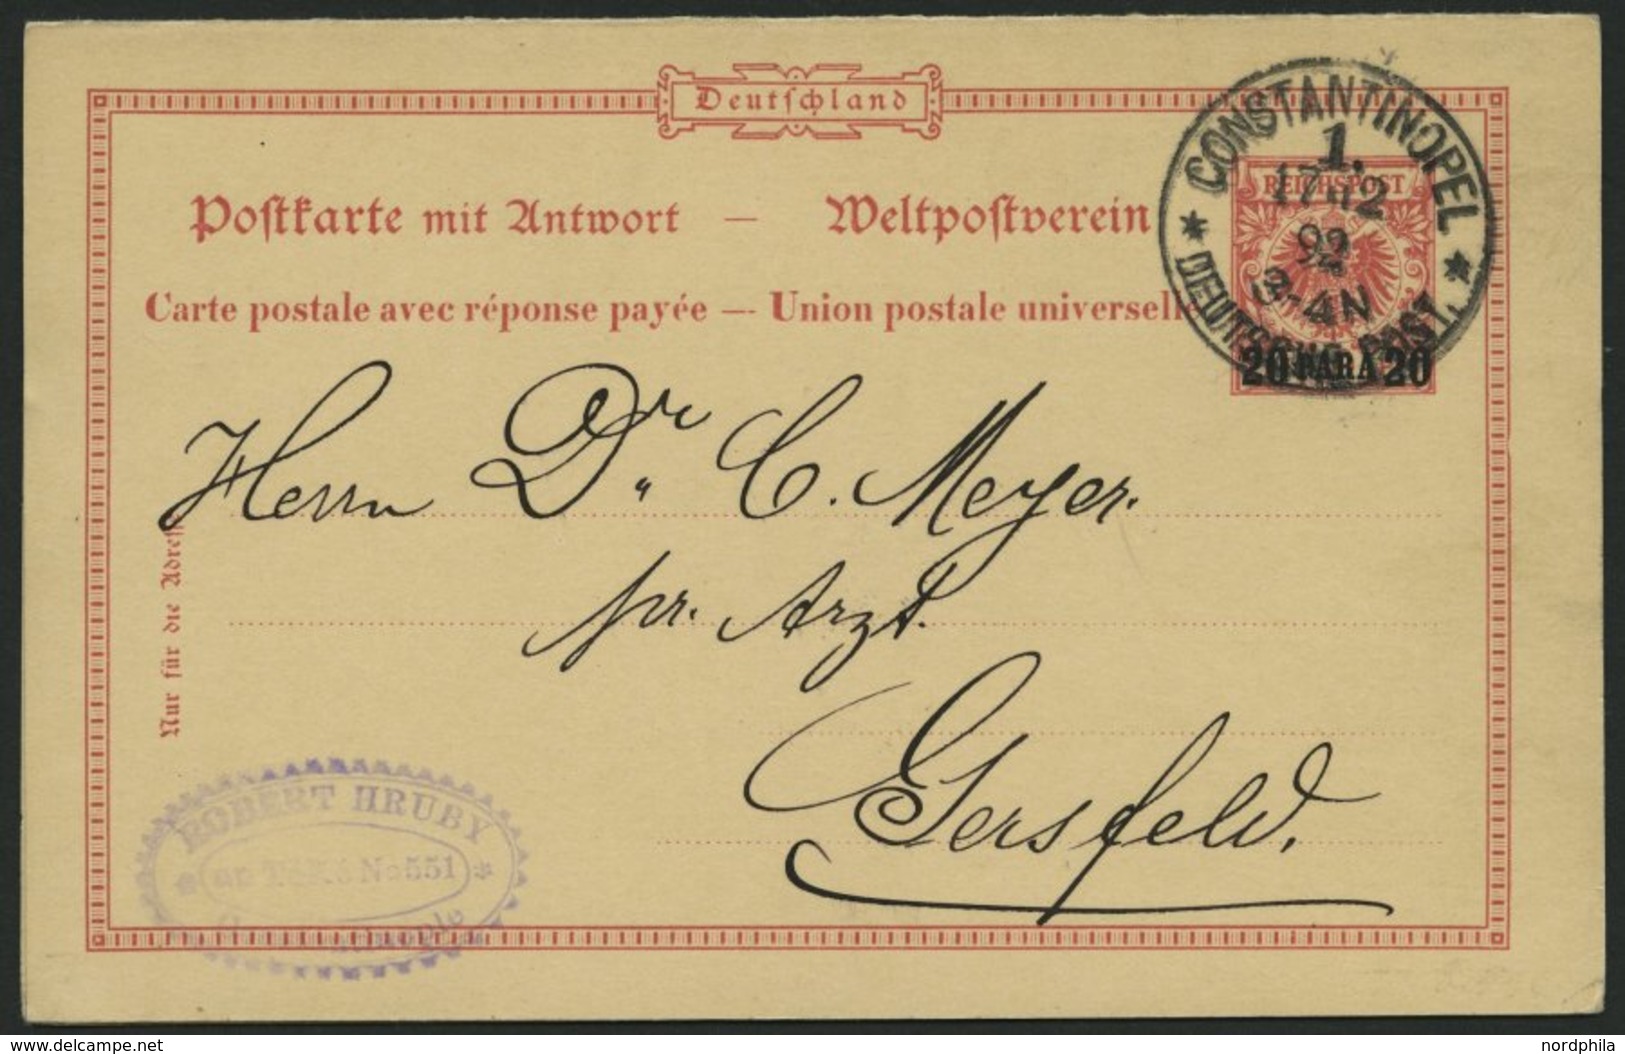 Deutschland
CONSTANTINOPEL
1.
17 12
92
3-4N
DEUTSCHE POST.
REICHSPOST
20 PARA 20
Postkarte mit Antwort — Weltpostverein
Carte postale avec réponse payée — Union postale universelle
Herrn Dr. C. Meyer.
pr. Arzt.
Gersfeld.
Nur für die Adresse
ROBERT HRUBY
No 551
Constantinople
www.delcampe.net
nordphila